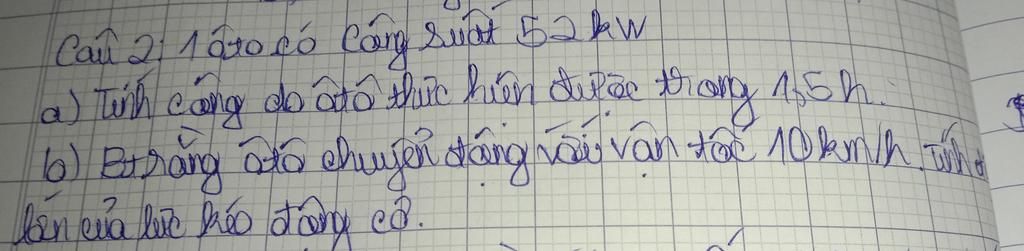 Câu 2: 1 ôtô có công suất 52 kW
a) Tính công do ôtô thực hiện được trong 1,5h.
b) Biết rằng ôtô chuyển động với vận tốc 10km/h. Tính độ
lớn của lực kéo động cơ.